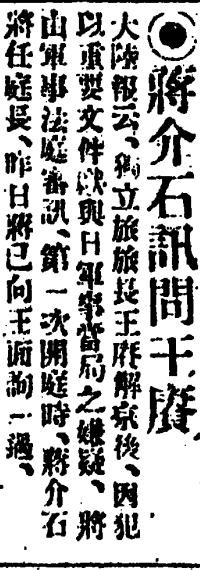 ◉蔣介石訊問王賡
大陸報云、獨立旅旅長王賡解京後、因犯
以重要文件獻與日軍事當局之嫌疑、將
由軍事法庭審訊、第一次開庭時、蔣介石
將任庭長、昨日蔣已向王面詢一過、